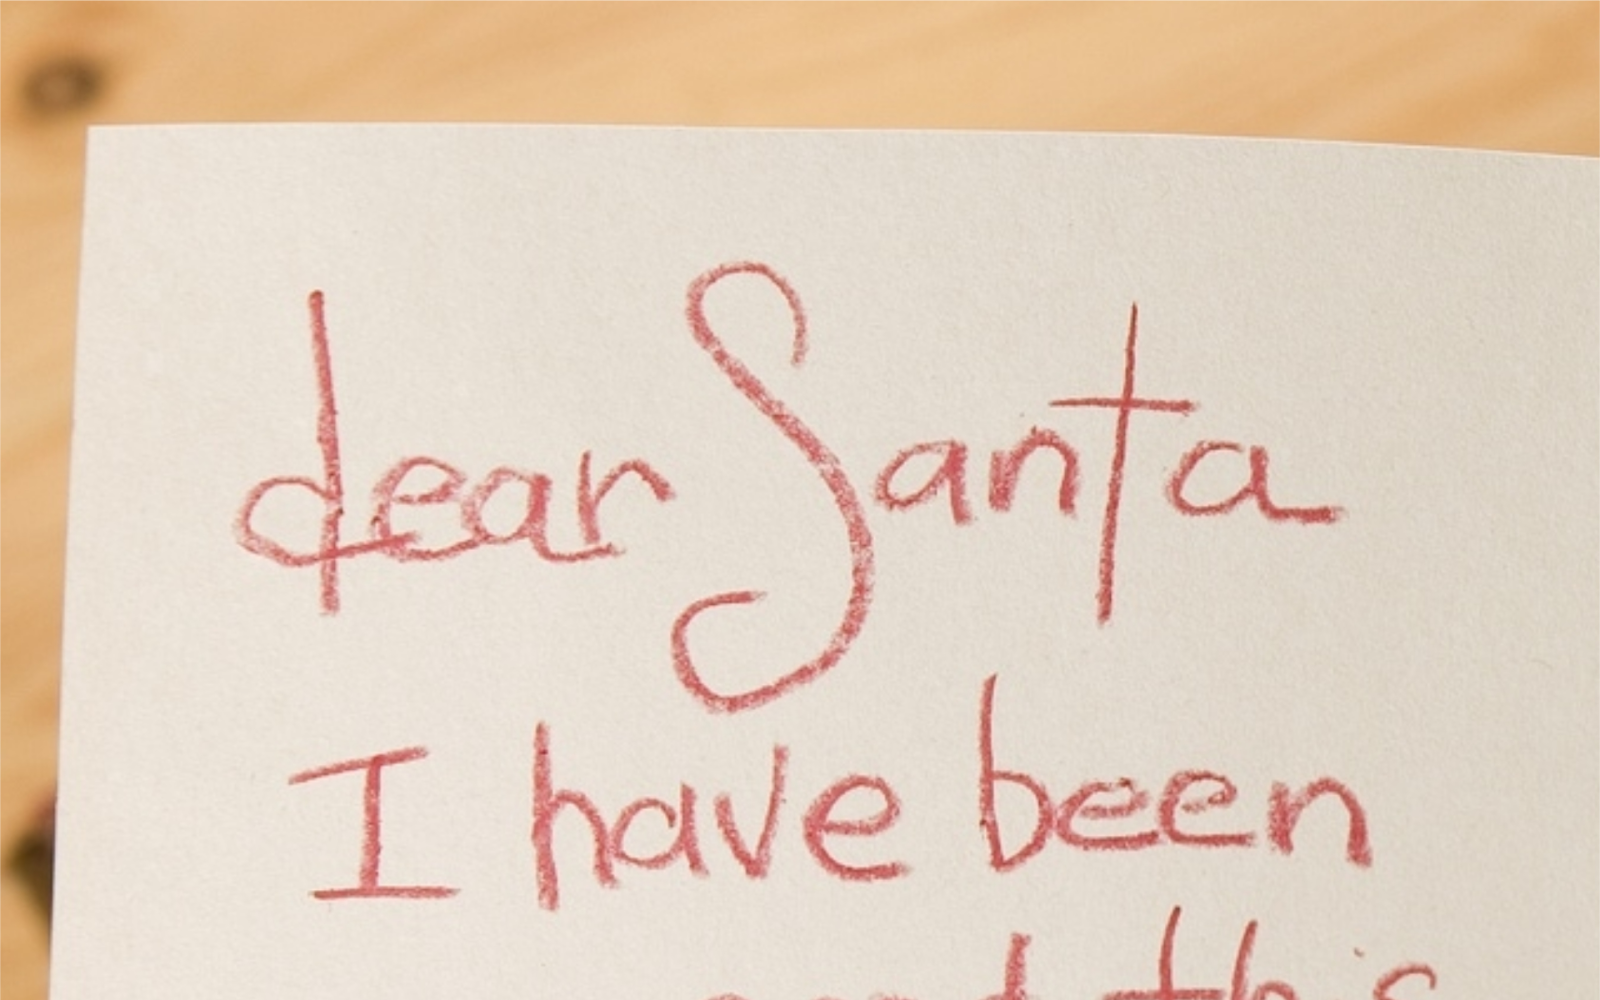 dear Santa
I have been
this